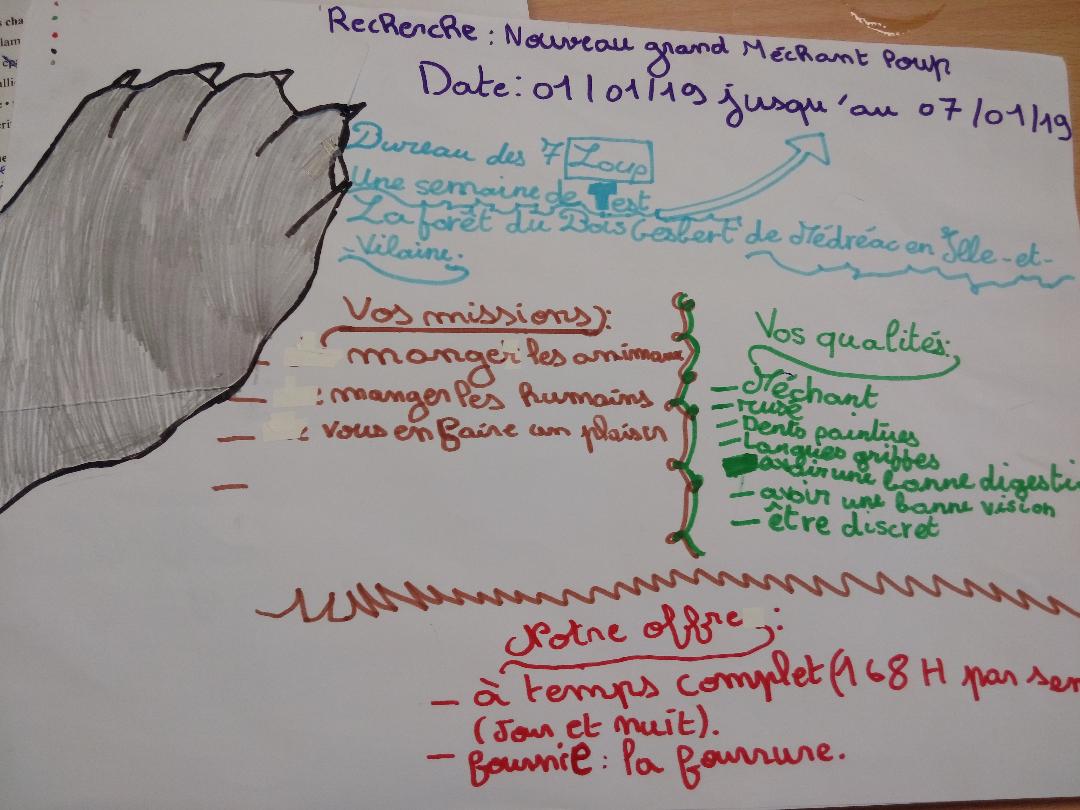 Recherche : Nouveau grand Méchant Poup
Date : 01/01/19 jusqu'au 07/01/19
Bureau des 7 Loup
Une semaine de Test
La forêt du Bois Gesbert de Médréac en Ille-et-
-Vilaine.
Vos missions :
- manger les animaux
- : manger les humains
- : vous en faire un plaisir
-
Vos qualités :
- Méchant
- rusé
- Dents paintues
- Langues griffes
avoir une bonne digesti
- avoir une bonne vision
- être discret
Notre offre :
- à temps complet (168 H par sem
(Jour et nuit).
- fournie : la fourrure.